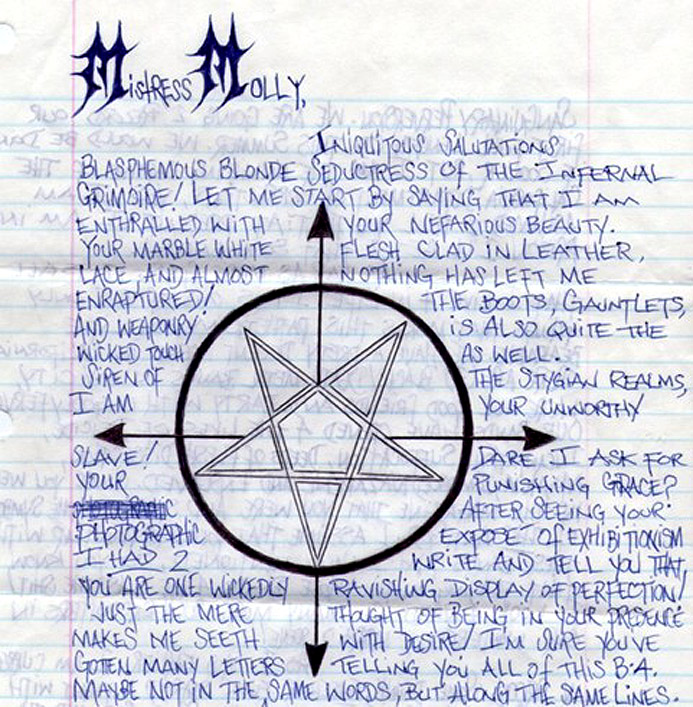 MISTRESS MOLLY,
INIQUITOUS SALUTATIONS
BLASPHEMOUS BLONDE SEDUCTRESS OF THE INFERNAL
GRIMOIRE! LET ME START BY SAYING THAT I AM
ENTHRALLED WITH YOUR NEFARIOUS BEAUTY.
YOUR MARBLE WHITE FLESH CLAD IN LEATHER,
LACE, AND ALMOST NOTHING HAS LEFT ME
ENRAPTURED! THE BOOTS, GAUNTLETS,
AND WEAPONRY IS ALSO QUITE THE
WICKED TOUCH AS WELL.
SIREN OF THE STYGIAN REALMS,
I AM YOUR UNWORTHY
SLAVE! DARE I ASK FOR
YOUR PUNISHING GRACE?
AFTER SEEING YOUR
PHOTOGRAPHIC EXPOSÉ OF EXHIBITIONISM
I HAD 2 WRITE AND TELL YOU THAT,
YOU ARE ONE WICKEDLY RAVISHING DISPLAY OF PERFECTION!
JUST THE MERE THOUGHT OF BEING IN YOUR PRESENCE
MAKES ME SEETH WITH DESIRE! I'M SURE YOU'VE
GOTTEN MANY LETTERS TELLING YOU ALL OF THIS B-4.
MAYBE NOT IN THE SAME WORDS, BUT ALONG THE SAME LINES.